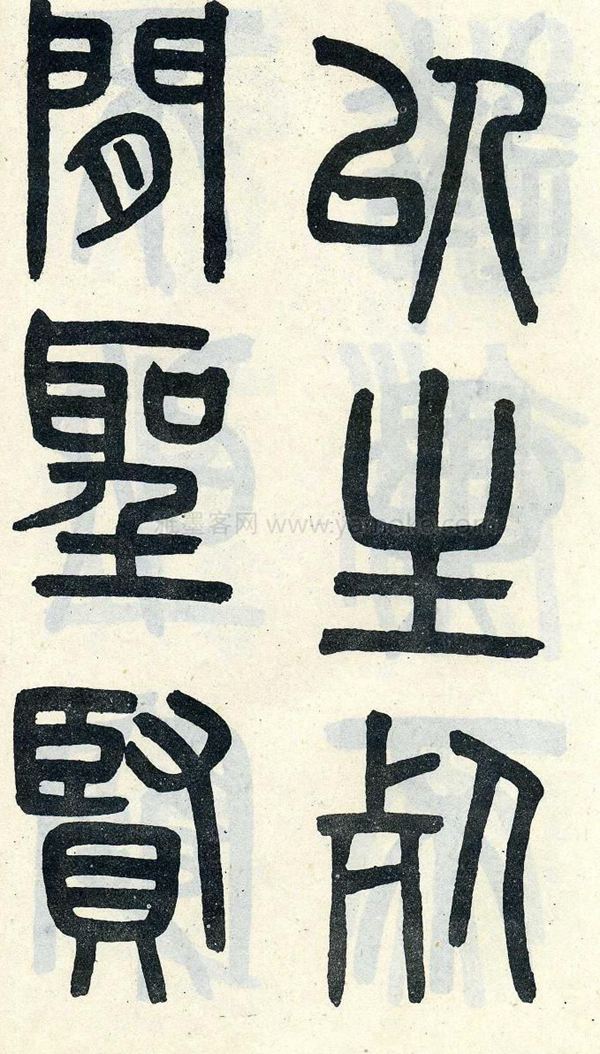 以生
閒聖賢
雅墨客网 www.yamoke.com